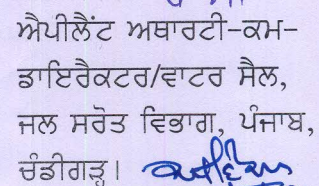 ਐਪੀਲੈਂਟ ਅਥਾਰਟੀ-ਕਮ-
ਡਾਇਰੈਕਟਰ/ਵਾਟਰ ਸੈਲ,
ਜਲ ਸਰੋਤ ਵਿਭਾਗ, ਪੰਜਾਬ,
ਚੰਡੀਗੜ੍ਹ।